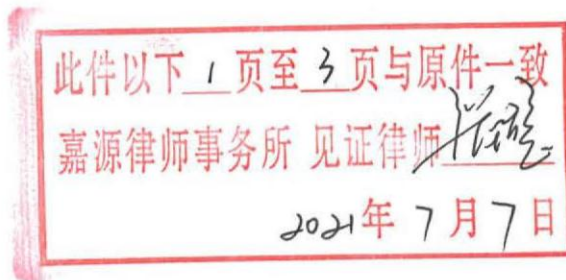 此件以下1页至3页与原件一致
嘉源律师事务所 见证律师
2021年7月7日